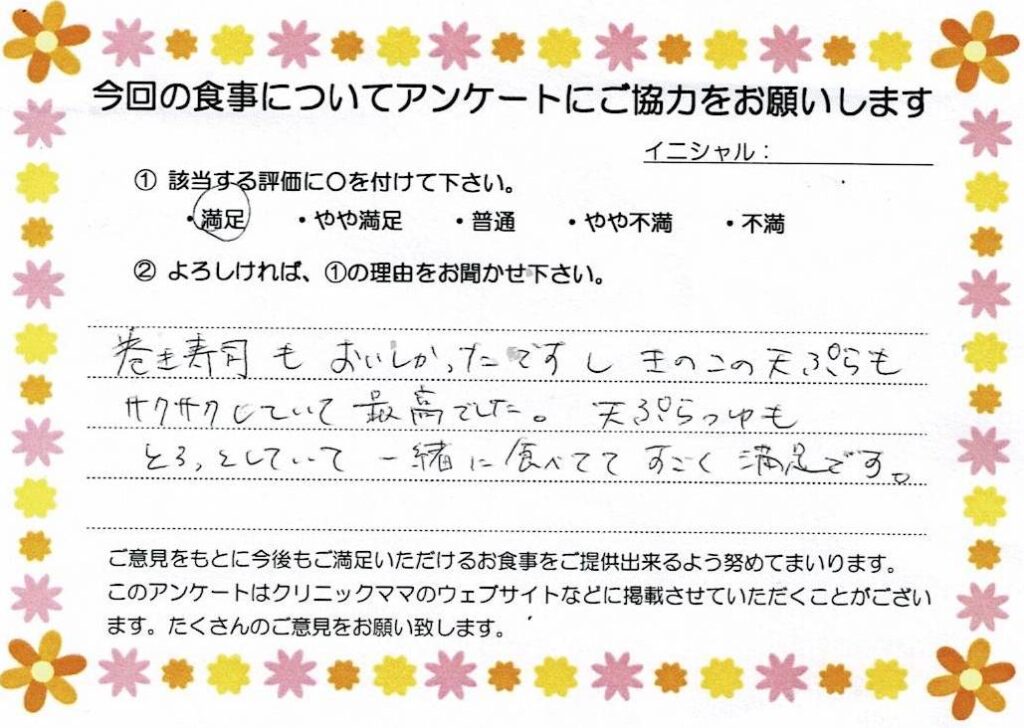 今回の食事についてアンケートにご協力をお願いします
イニシャル：
① 該当する評価に〇を付けて下さい。
・満足 ・やや満足 ・普通 ・やや不満 ・不満
② よろしければ、①の理由をお聞かせ下さい。
巻き寿司も おいしかったですし きのこの天ぷらも
サクサクしていて 最高でした。 天ぷらつゆも
とろっとしていて 一緒に食べてて すごく満足です。
ご意見をもとに今後もご満足いただけるお食事をご提供出来るよう努めてまいります。
このアンケートはクリニックママのウェブサイトなどに掲載させていただくことがござい
ます。たくさんのご意見をお願い致します。